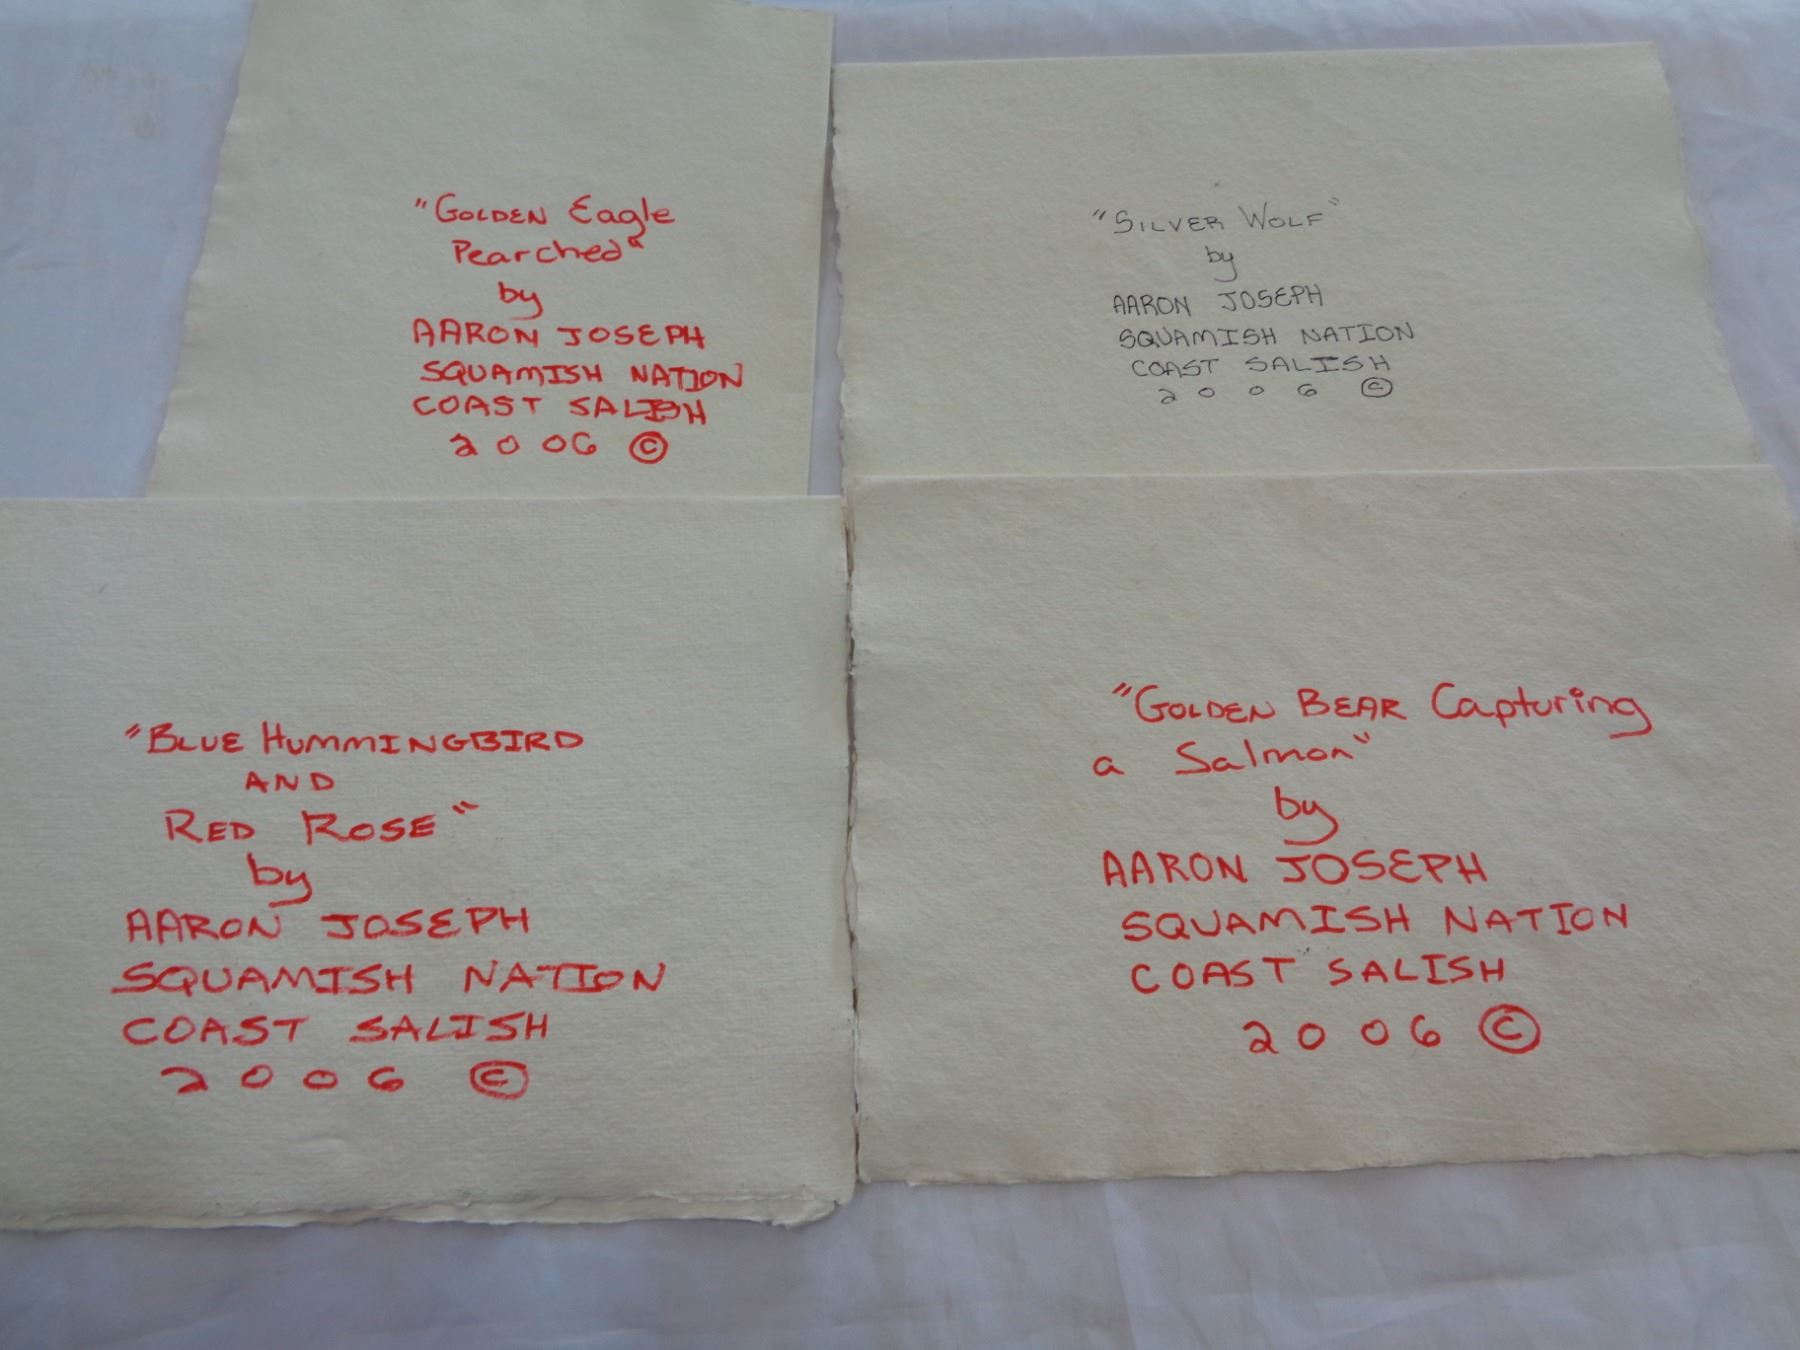 "GOLDEN Eagle
Pearched"
by
AARON JOSEPH
SQUAMISH NATION
COAST SALISH
2006 ©
"SILVER WOLF"
by
AARON JOSEPH
SQUAMISH NATION
COAST SALISH
2006 ©
"BLUE HUMMINGBIRD
AND
RED ROSE"
by
AARON JOSEPH
SQUAMISH NATION
COAST SALISH
2006 ©
"GOLDEN BEAR Capturing
a Salmon"
by
AARON JOSEPH
SQUAMISH NATION
COAST SALISH
2006 ©